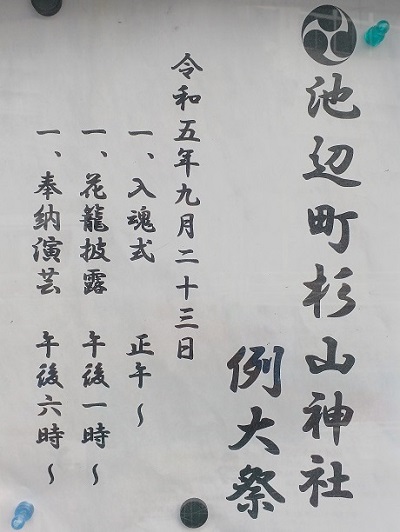 池辺町杉山神社
例大祭
令和五年九月二十三日
一、入魂式　正午～
一、花籠披露　午後一時～
一、奉納演芸　午後六時～